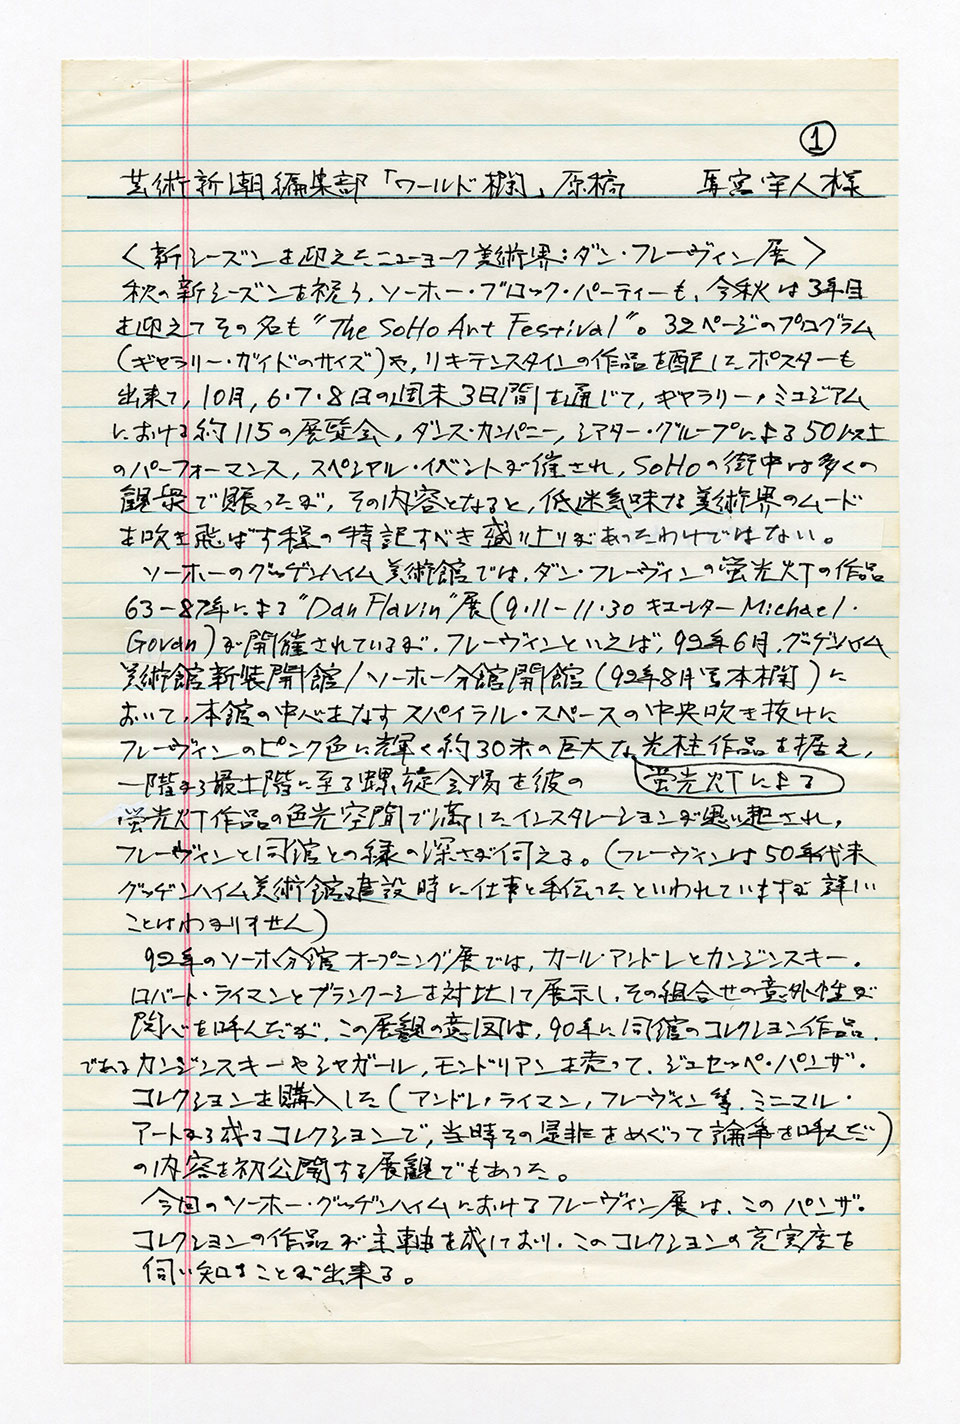 ①
芸術新潮編集部「ワールド欄」原稿　馬宮宇人様
〈新シーズンを迎えたニューヨーク美術界:ダン・フレーヴィン展〉
秋の新シーズンを祝う、ソーホー・ブロック・パーティーも、今秋は3年目
を迎えてその名も"The SoHo Art Festival"。32ページのプログラム
(ギャラリー・ガイドのサイズ)や、リキテンスタインの作品を配したポスターも
出来て、10月、6・7・8日の週末3日間を通じて、ギャラリー、ミュジアム
における約115の展覧会、ダンス・カンパニー、シアター・グループによる50以上
のパーフォーマンス、スペシャル・イベントが催され、SoHoの街中は多くの
観衆で賑ったが、その内容となると、低迷気味な美術界のムード
を吹き飛ばす程の特記すべき盛り上りがあったわけではない。
ソーホーのグッゲンハイム美術館では、ダン・フレーヴィンの蛍光灯の作品
63-87年による"Dan Flavin"展(9・11-11・30 キューレター Michael・
Govan)が開催されているが、フレーヴィンといえば、92年6月、グーゲンハイム
美術館新装開館/ソーホー分館開館(92年8月号本欄)に
おいて、本館の中心をなすスパイラル・スペースの中央吹き抜けに
フレーヴィンのピンク色に輝く約30米の巨大な光柱作品を据え、
一階から最上階に至る螺旋会場を彼の　蛍光灯による
蛍光灯作品の色光空間で満したインスタレーションが思い起され、
フレーヴィンと同館との縁の深さが伺える。(フレーヴィンは50年代末
グッゲンハイム美術館建設時に仕事を手伝ったといわれていますが詳しい
ことはわかりません)
92年のソーホー分館オープニング展では、カール・アンドレとカンジンスキー、
ロバート・ライマンとブランクーシを対比して展示し、その組合せの意外性が
関心を呼んだが、この展観の意図は、90年に同館のコレクション作品、
であるカンジンスキーやシャガール、モンドリアンを売って、ジュセッペ・パンザ・
コレクションを購入した(アンドレ、ライマン、フレーヴィン等、ミニマル・
アートから成るコレクションで、当時その是非をめぐって論争を呼んだ)
の内容を初公開する展観でもあった。
今回のソーホー・グッゲンハイムにおけるフレーヴィン展は、このパンザ・
コレクションの作品が主軸を成しており、このコレクションの充実度を
伺い知ることが出来る。